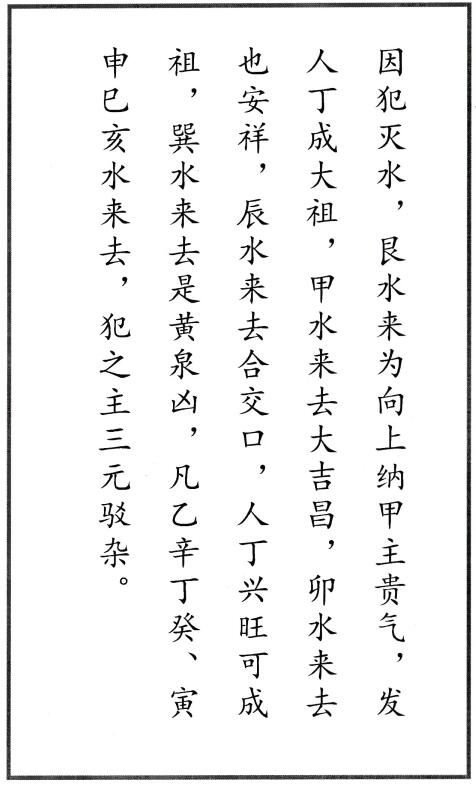 因犯灭水，艮水来为向上纳甲主贵气，发
人丁成大祖，甲水来去大吉昌，卯水来去
也安祥，辰水来去合交口，人丁兴旺可成
祖，巽水来去是黄泉凶，凡乙辛丁癸、寅
申巳亥水来去，犯之主三元驳杂。